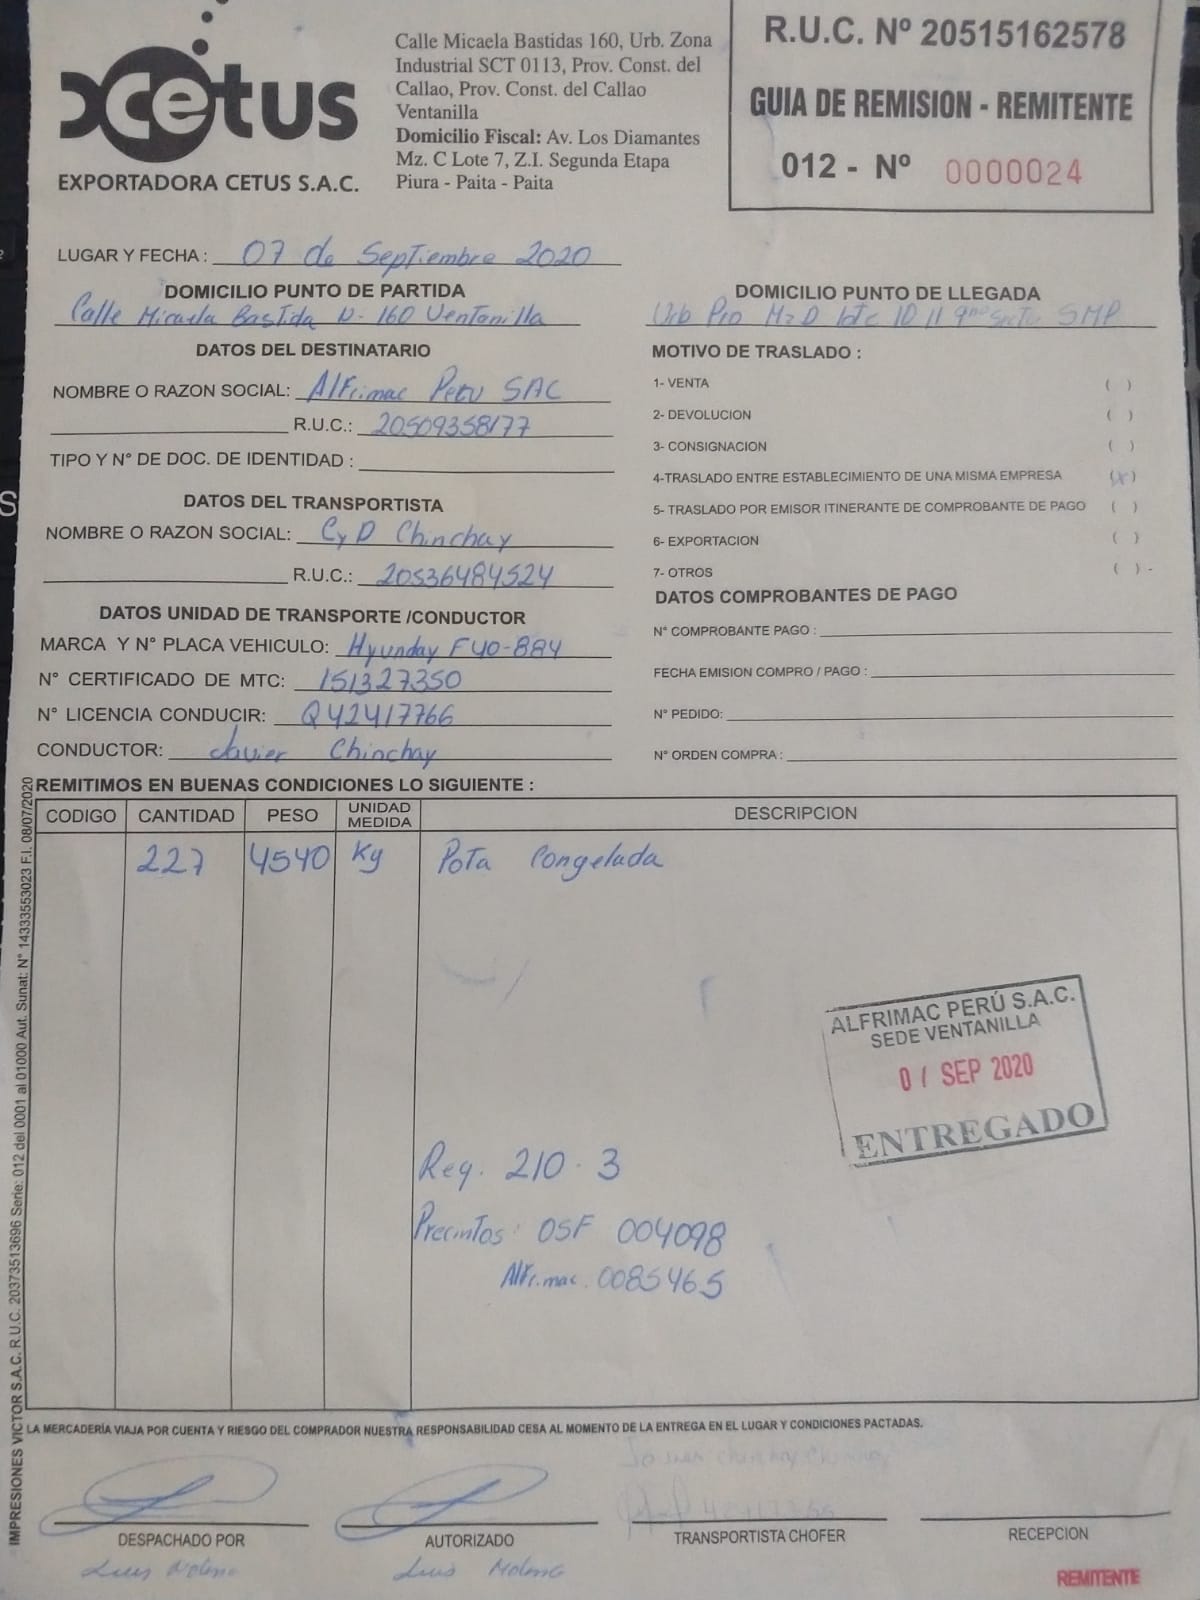 xcetus
EXPORTADORA CETUS S.A.C.
Calle Micaela Bastidas 160, Urb. Zona
Industrial SCT 0113, Prov. Const. del
Callao, Prov. Const. del Callao
Ventanilla
Domicilio Fiscal: Av. Los Diamantes
Mz. C Lote 7, Z.I. Segunda Etapa
Piura - Paita - Paita
R.U.C. Nº 20515162578
GUIA DE REMISION - REMITENTE
012 - Nº 0000024
LUGAR Y FECHA : 07 de Septiembre 2020
DOMICILIO PUNTO DE PARTIDA
Calle Micaela Bastida N- 160 Ventanilla
DOMICILIO PUNTO DE LLEGADA
Urb Pro Mz D lote 10 11 9no Sector SMP
DATOS DEL DESTINATARIO
NOMBRE O RAZON SOCIAL: Alfrimac Peru SAC
R.U.C.: 20509358177
TIPO Y N° DE DOC. DE IDENTIDAD :
DATOS DEL TRANSPORTISTA
NOMBRE O RAZON SOCIAL: C y D Chinchay
R.U.C.: 20536484524
DATOS UNIDAD DE TRANSPORTE /CONDUCTOR
MARCA Y N° PLACA VEHICULO: Hyunday F40-884
N° CERTIFICADO DE MTC: 151327350
N° LICENCIA CONDUCIR: Q42417766
CONDUCTOR: Javier Chinchay
MOTIVO DE TRASLADO :
1- VENTA ( )
2- DEVOLUCION ( )
3- CONSIGNACION ( )
4-TRASLADO ENTRE ESTABLECIMIENTO DE UNA MISMA EMPRESA (x)
5- TRASLADO POR EMISOR ITINERANTE DE COMPROBANTE DE PAGO ( )
6- EXPORTACION ( )
7- OTROS ( ) -
DATOS COMPROBANTES DE PAGO
N° COMPROBANTE PAGO :
FECHA EMISION COMPRO / PAGO :
N° PEDIDO:
N° ORDEN COMPRA :
REMITIMOS EN BUENAS CONDICIONES LO SIGUIENTE :
CODIGO CANTIDAD PESO UNIDAD MEDIDA DESCRIPCION
227 4540 Kg Pota Congelada
ALFRIMAC PERÚ S.A.C.
SEDE VENTANILLA
SEP 2020
ENTREGADO
Req. 210.3
Precintos: OSF 004098
Alfrimac. 0085465
IMPRESIONES VICTOR S.A.C. R.U.C. 20373513696 Serie: 012 del 0001 al 01000 Aut. Sunat: N° 14333553023 F.I. 08/07/2020
LA MERCADERÍA VIAJA POR CUENTA Y RIESGO DEL COMPRADOR NUESTRA RESPONSABILIDAD CESA AL MOMENTO DE LA ENTREGA EN EL LUGAR Y CONDICIONES PACTADAS.
DESPACHADO POR
Luis Molina
AUTORIZADO
Luis Molina
TRANSPORTISTA CHOFER
RECEPCION
REMITENTE